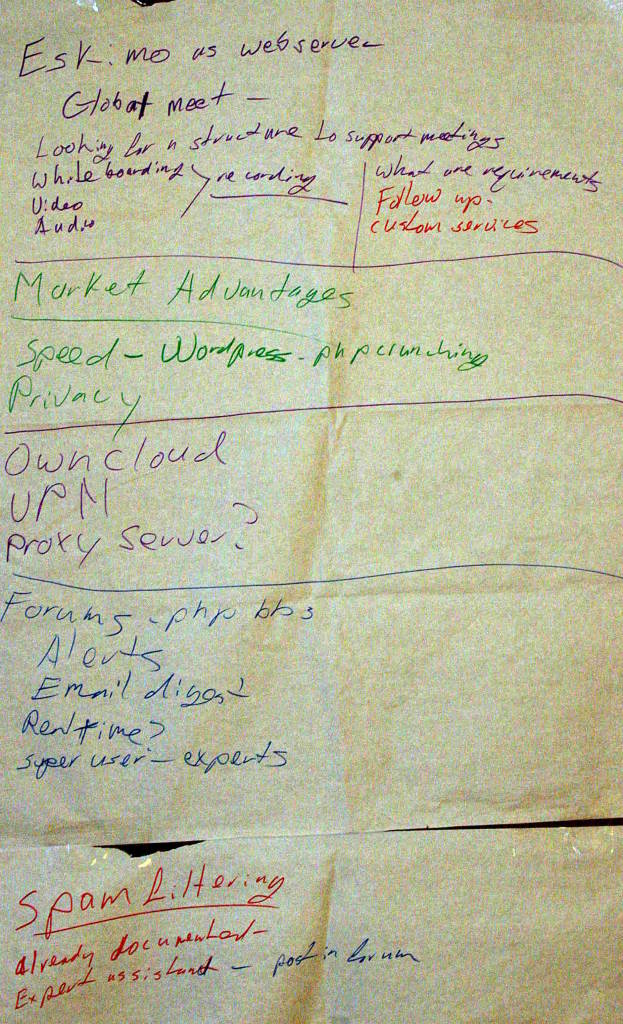 Eskimo as webserver
Global meet -
Looking for a structure to support meetings
White boarding
Video
Audio
recording
What are requirements
Follow up -
custom services
Market Advantages
Speed - Wordpress - php crunching
Privacy
Owncloud
VPN
Proxy Server?
Forums - php bb3
Alerts
Email digest
Realtime?
super user - experts
Spam filtering
Already documented -
Expert assistant - post in forum